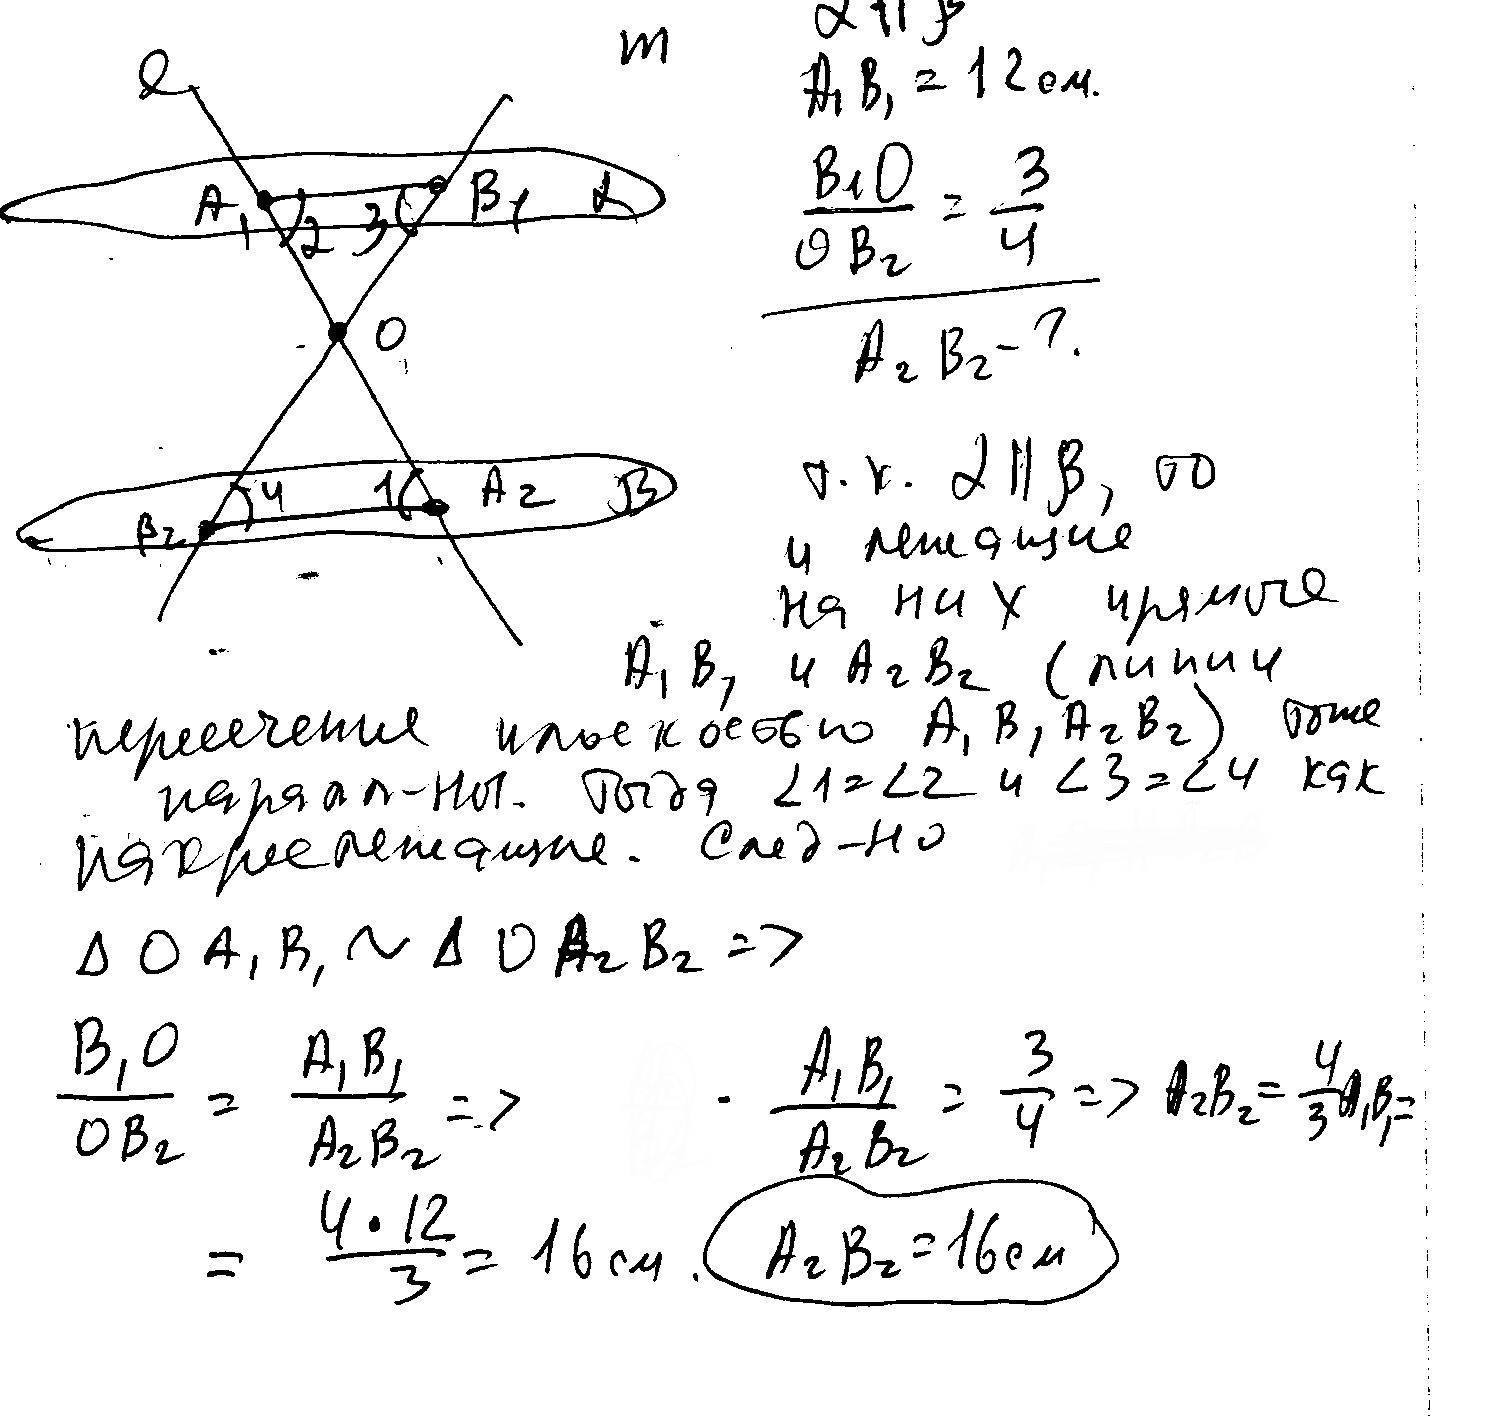 l
m
α || β
A₁B₁ = 12 см.
B₁O / OB₂ = 3/4
A₂B₂ - ?
A₁ 2 3 B₁ α
O
B₂ 4 1 A₂ β
т.к. α || β, то
и лежащие
на них прямые
A₁B₁ и A₂B₂ (линии
пересечения плоскостью A₁B₁A₂B₂) тоже
паралл-ны. Тогда ∠1=∠2 и ∠3=∠4 как
накрестлежащие. След-но
Δ OA₁B₁ ~ Δ OA₂B₂ =>
B₁O / OB₂ = A₁B₁ / A₂B₂ => A₁B₁ / A₂B₂ = 3/4 => A₂B₂ = 4/3 A₁B₁ =
= 4·12 / 3 = 16 см. A₂B₂ = 16 см